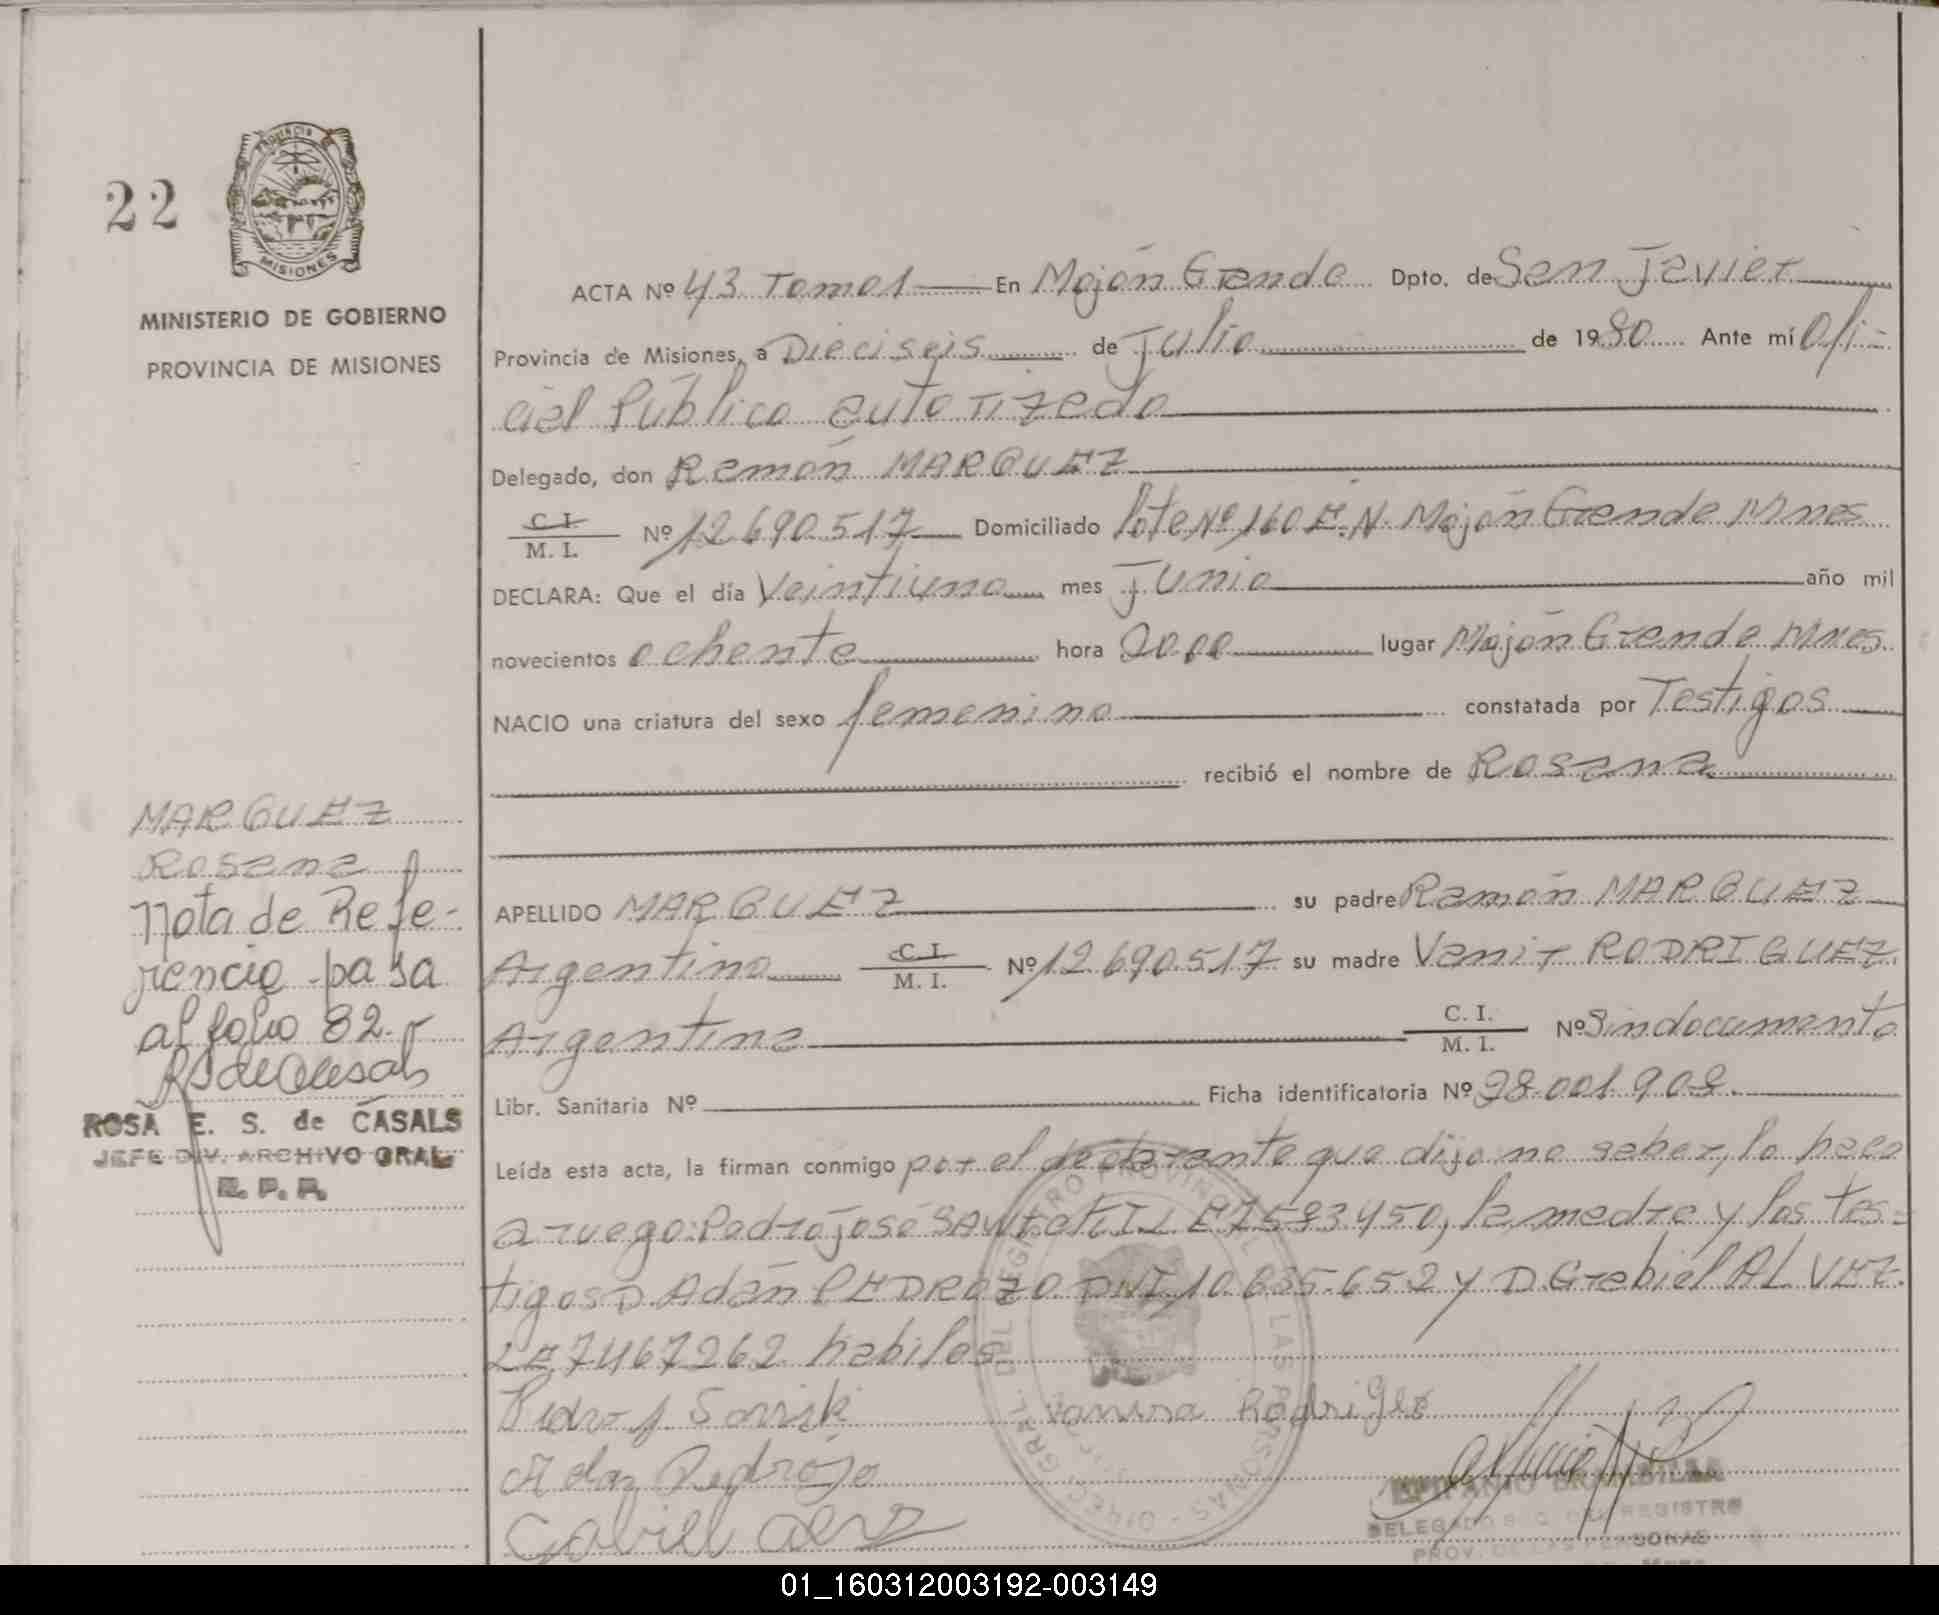 22
PROVINCIA DE
MISIONES
MINISTERIO DE GOBIERNO
PROVINCIA DE MISIONES
MARQUEZ
Rosana
Nota de Refe-
rencia pasa
al folio 82.-
ROSA E. S. de CASALS
JEFE DIV. ARCHIVO GRAL.
R. P. P.
ACTA Nº 43 Tomo1 En Mojón Grande Dpto. de San Javier
Provincia de Misiones, a Dieciseis de Julio de 1980 Ante mí Ofi-
cial Público autorizado
Delegado, don Ramón MARQUEZ
C. I. / M. I. Nº 12.690.517 Domiciliado lote Nº 160 E.N. Mojón Grande Mnes
DECLARA: Que el día Veintiuno mes Junio año mil
novecientos ochenta hora 20.00 lugar Mojón Grande Mnes.
NACIO una criatura del sexo femenino constatada por Testigos
recibió el nombre de Rosana
APELLIDO MARQUEZ su padre Ramón MARQUEZ
Argentino C. I. / M. I. Nº 12.690.517 su madre Vanir RODRIGUEZ
Argentina C. I. / M. I. Nº Sindocumento
Libr. Sanitaria Nº Ficha identificatoria Nº 28.001.908.
Leída esta acta, la firman conmigo por el declarante que dijo no saber, lo hace
a ruego: Pedro José L E 7583450, la madre y los tes=
tigos D. Adán PEDROZO DNI 10.635.652 y D Grabiel ALVEZ.
LE 7467262 habiles
Pedro J
Vanira Rodriguez
Adan Pedrozo
Gabriel
EPIFANIO
DELEGADO REGISTRO
PROV. DE LAS PERSONAS
01_160312003192-003149